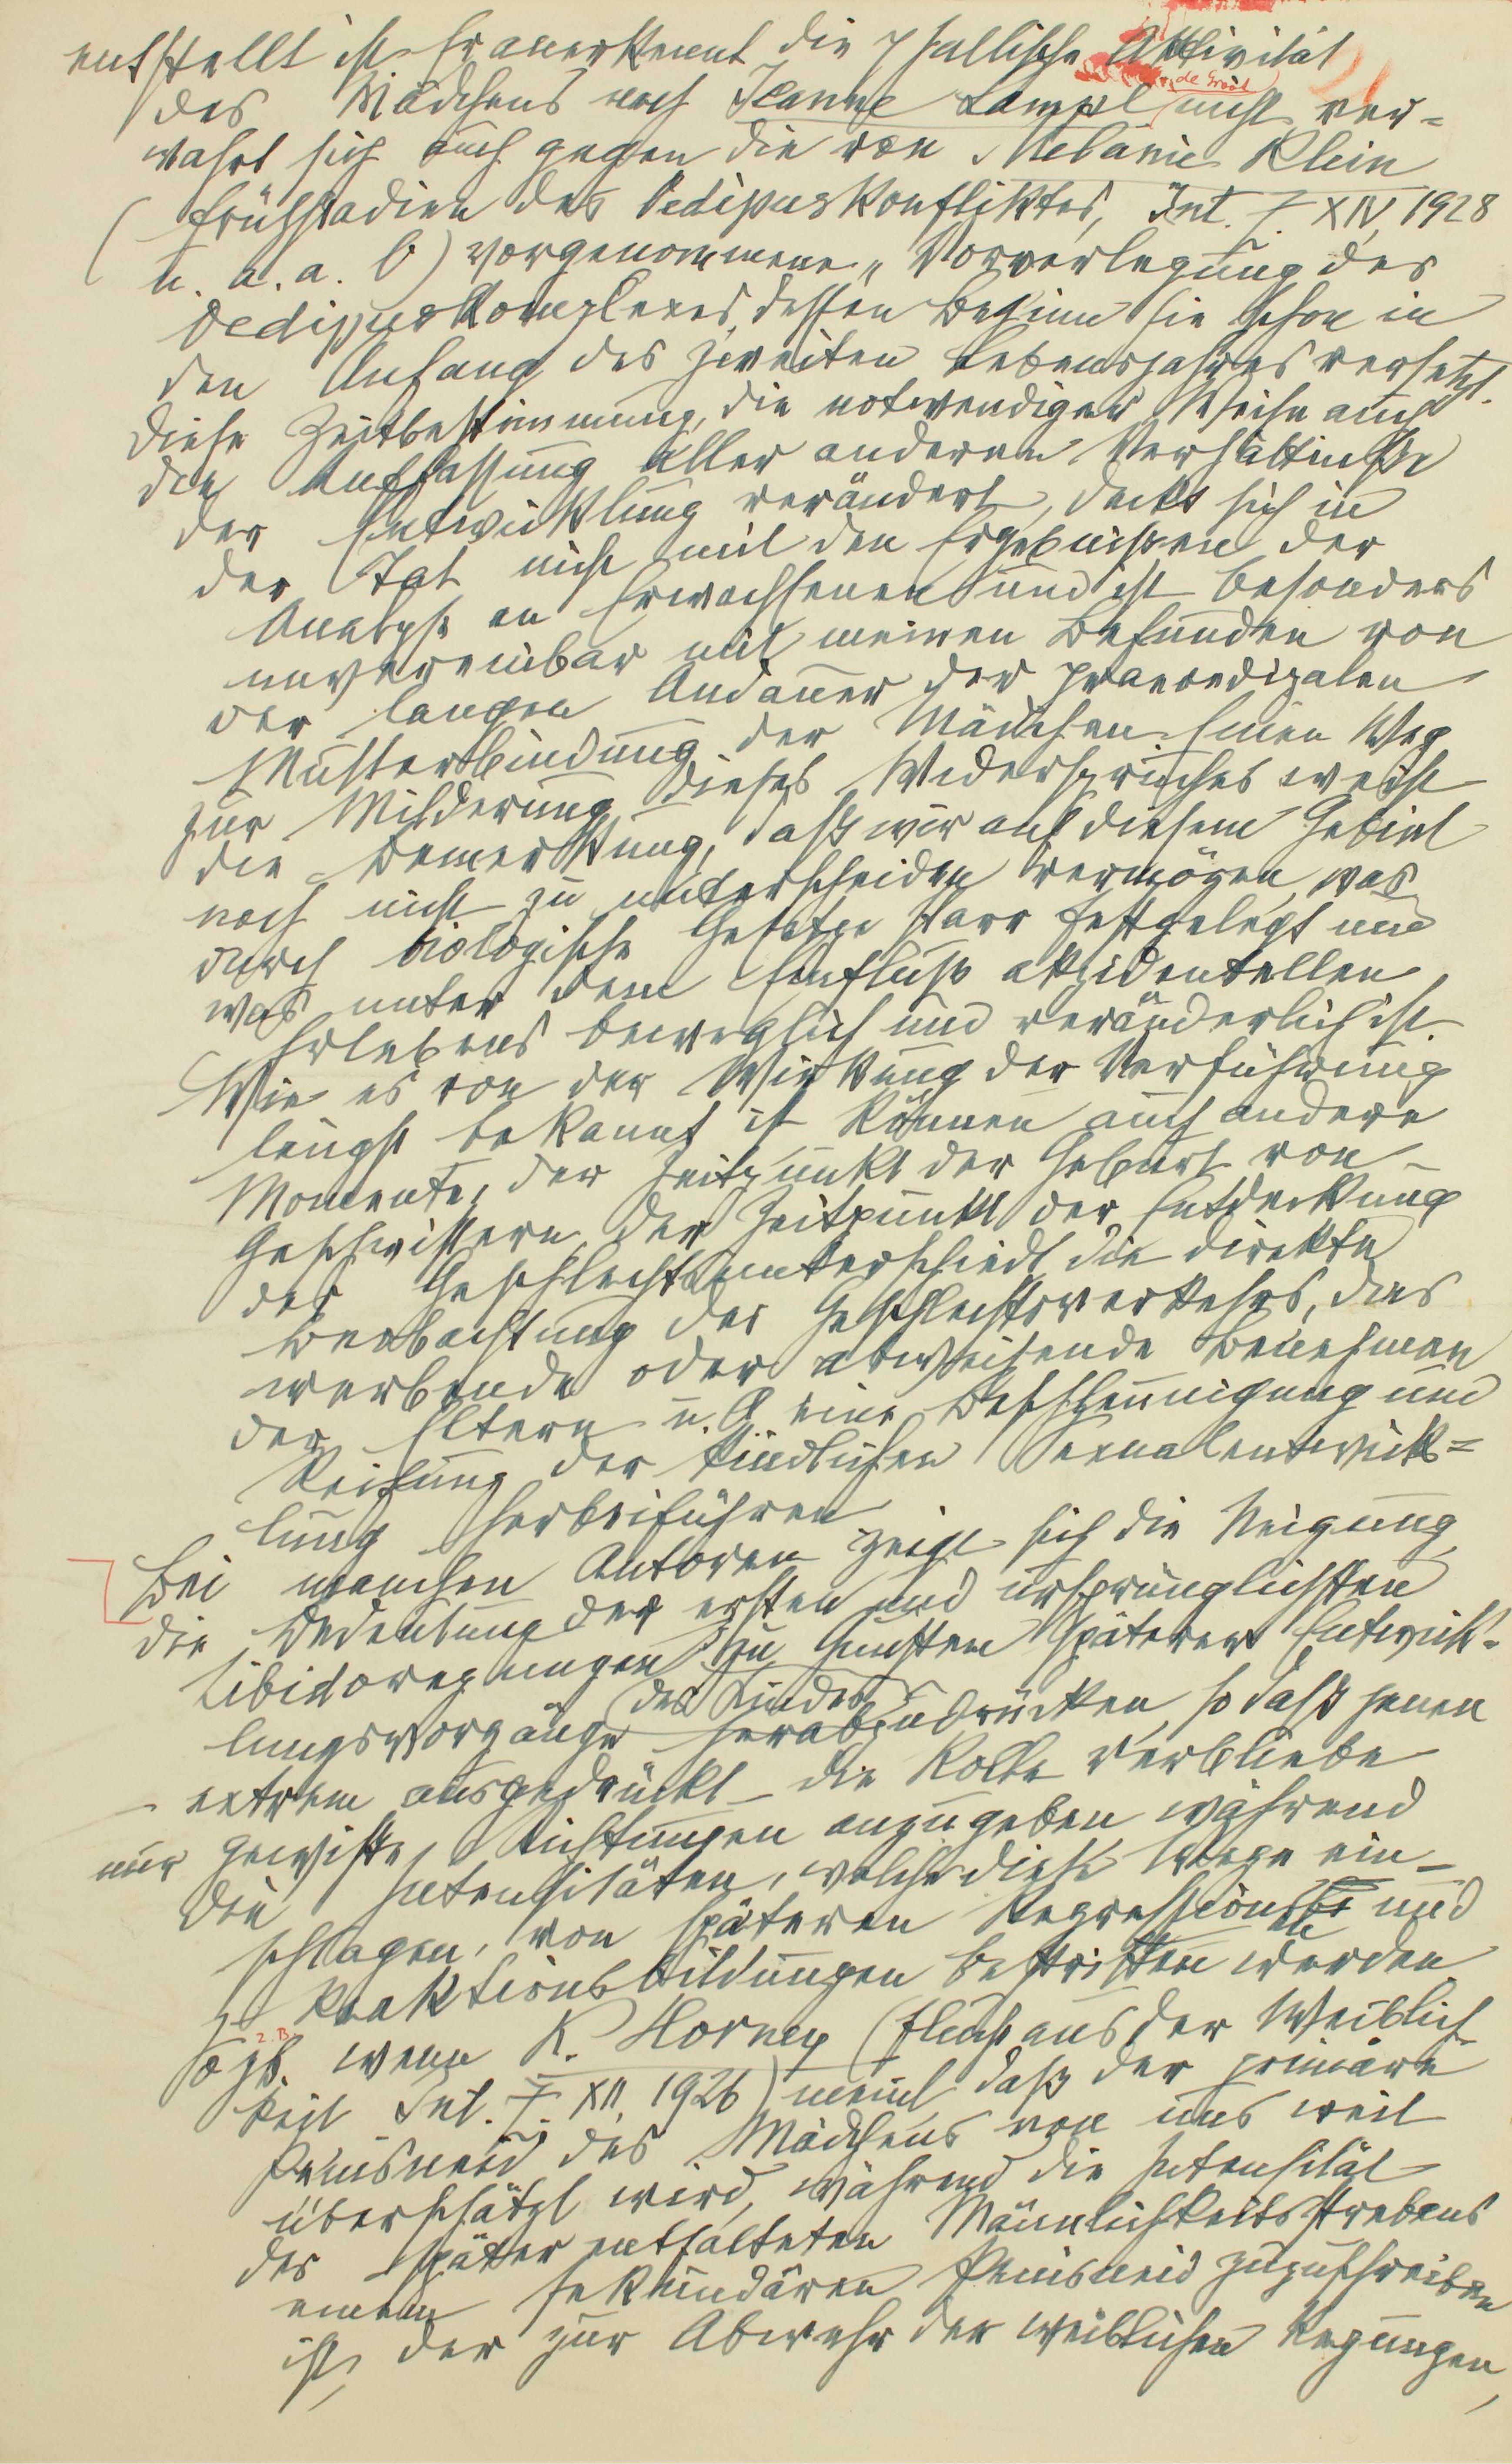 entstellt ist. Er anerkennt die phallische Aktivität
des Mädchens nach Jeanne Lampl de Groot nicht ver=
wahrt sich auch gegen die von Melanie Klein
(Frühstadien des Oedipuskonfliktes, Int. Z. XIV, 1928
u. a. a. O) vorgenommene „Vorverlegung des
Oedipuskomplexes, dessen Beginn sie schon in
den Anfang des zweiten Lebensjahres versetzt.
Diese Zeitbestimmung, die notwendiger Weise auch
die Auffassung aller anderen Verhältnisse
der Entwicklung verändert, deckt sich in
der Tat nicht mit den Ergebnissen der
Analyse an Erwachsenen und ist besonders
unvereinbar mit meinen Befunden von
der langen Andauer der praeoedipalen
Mutterbindung der Mädchen. Einen Weg
zur Milderung dieses Widerspruches weist
die Bemerkung, daß wir auf diesem Gebiet
noch nicht zu unterscheiden vermögen, was
durch biologische Gesetze starr festgelegt und
was unter dem Einfluß akzidentellen
Erlebens beweglich und veränderlich ist.
Wie es von der Wirkung der Verführung
längst bekannt ist können auch andere
Momente, der Zeitpunkt der Geburt von
Geschwistern, der Zeitpunkt der Entdeckung
des Geschlechtsunterschieds die direkte
Beobachtung des Geschlechtsverkehrs, das
werbende oder abweisende Benehmen
der Eltern u. A. eine Beschleunigung und
Reifung der kindlichen Sexualentwick=
lung herbeiführen
Bei manchen Autoren zeigt sich die Neigung,
die Bedeutung der ersten und ursprünglichsten
Libidoregungen zu Gunsten späterer Entwick-
des Kindes
lungsvorgänge herabzudrücken, so daß jenen
– extrem ausgedrückt – die Rolle verbliebe
nur gewisse Richtungen anzugeben während
die Intensitäten, welche diese Wege ein-
schlagen, von späteren Regressionen und
Reaktionsbildungen bestritten werden
So zb. z.B. wenn K. Horney (Flucht aus der Weiblich
keit Int. Z. XII, 1926) meint, daß der primäre
Penisneid des Mädchens von uns weit
überschätzt wird, während die Intensität
des später entfalteten Männlichkeitsstrebens
einem sekundären Penisneid zuzuschreiben
ist, der zur Abwehr der weiblichen Regungen,